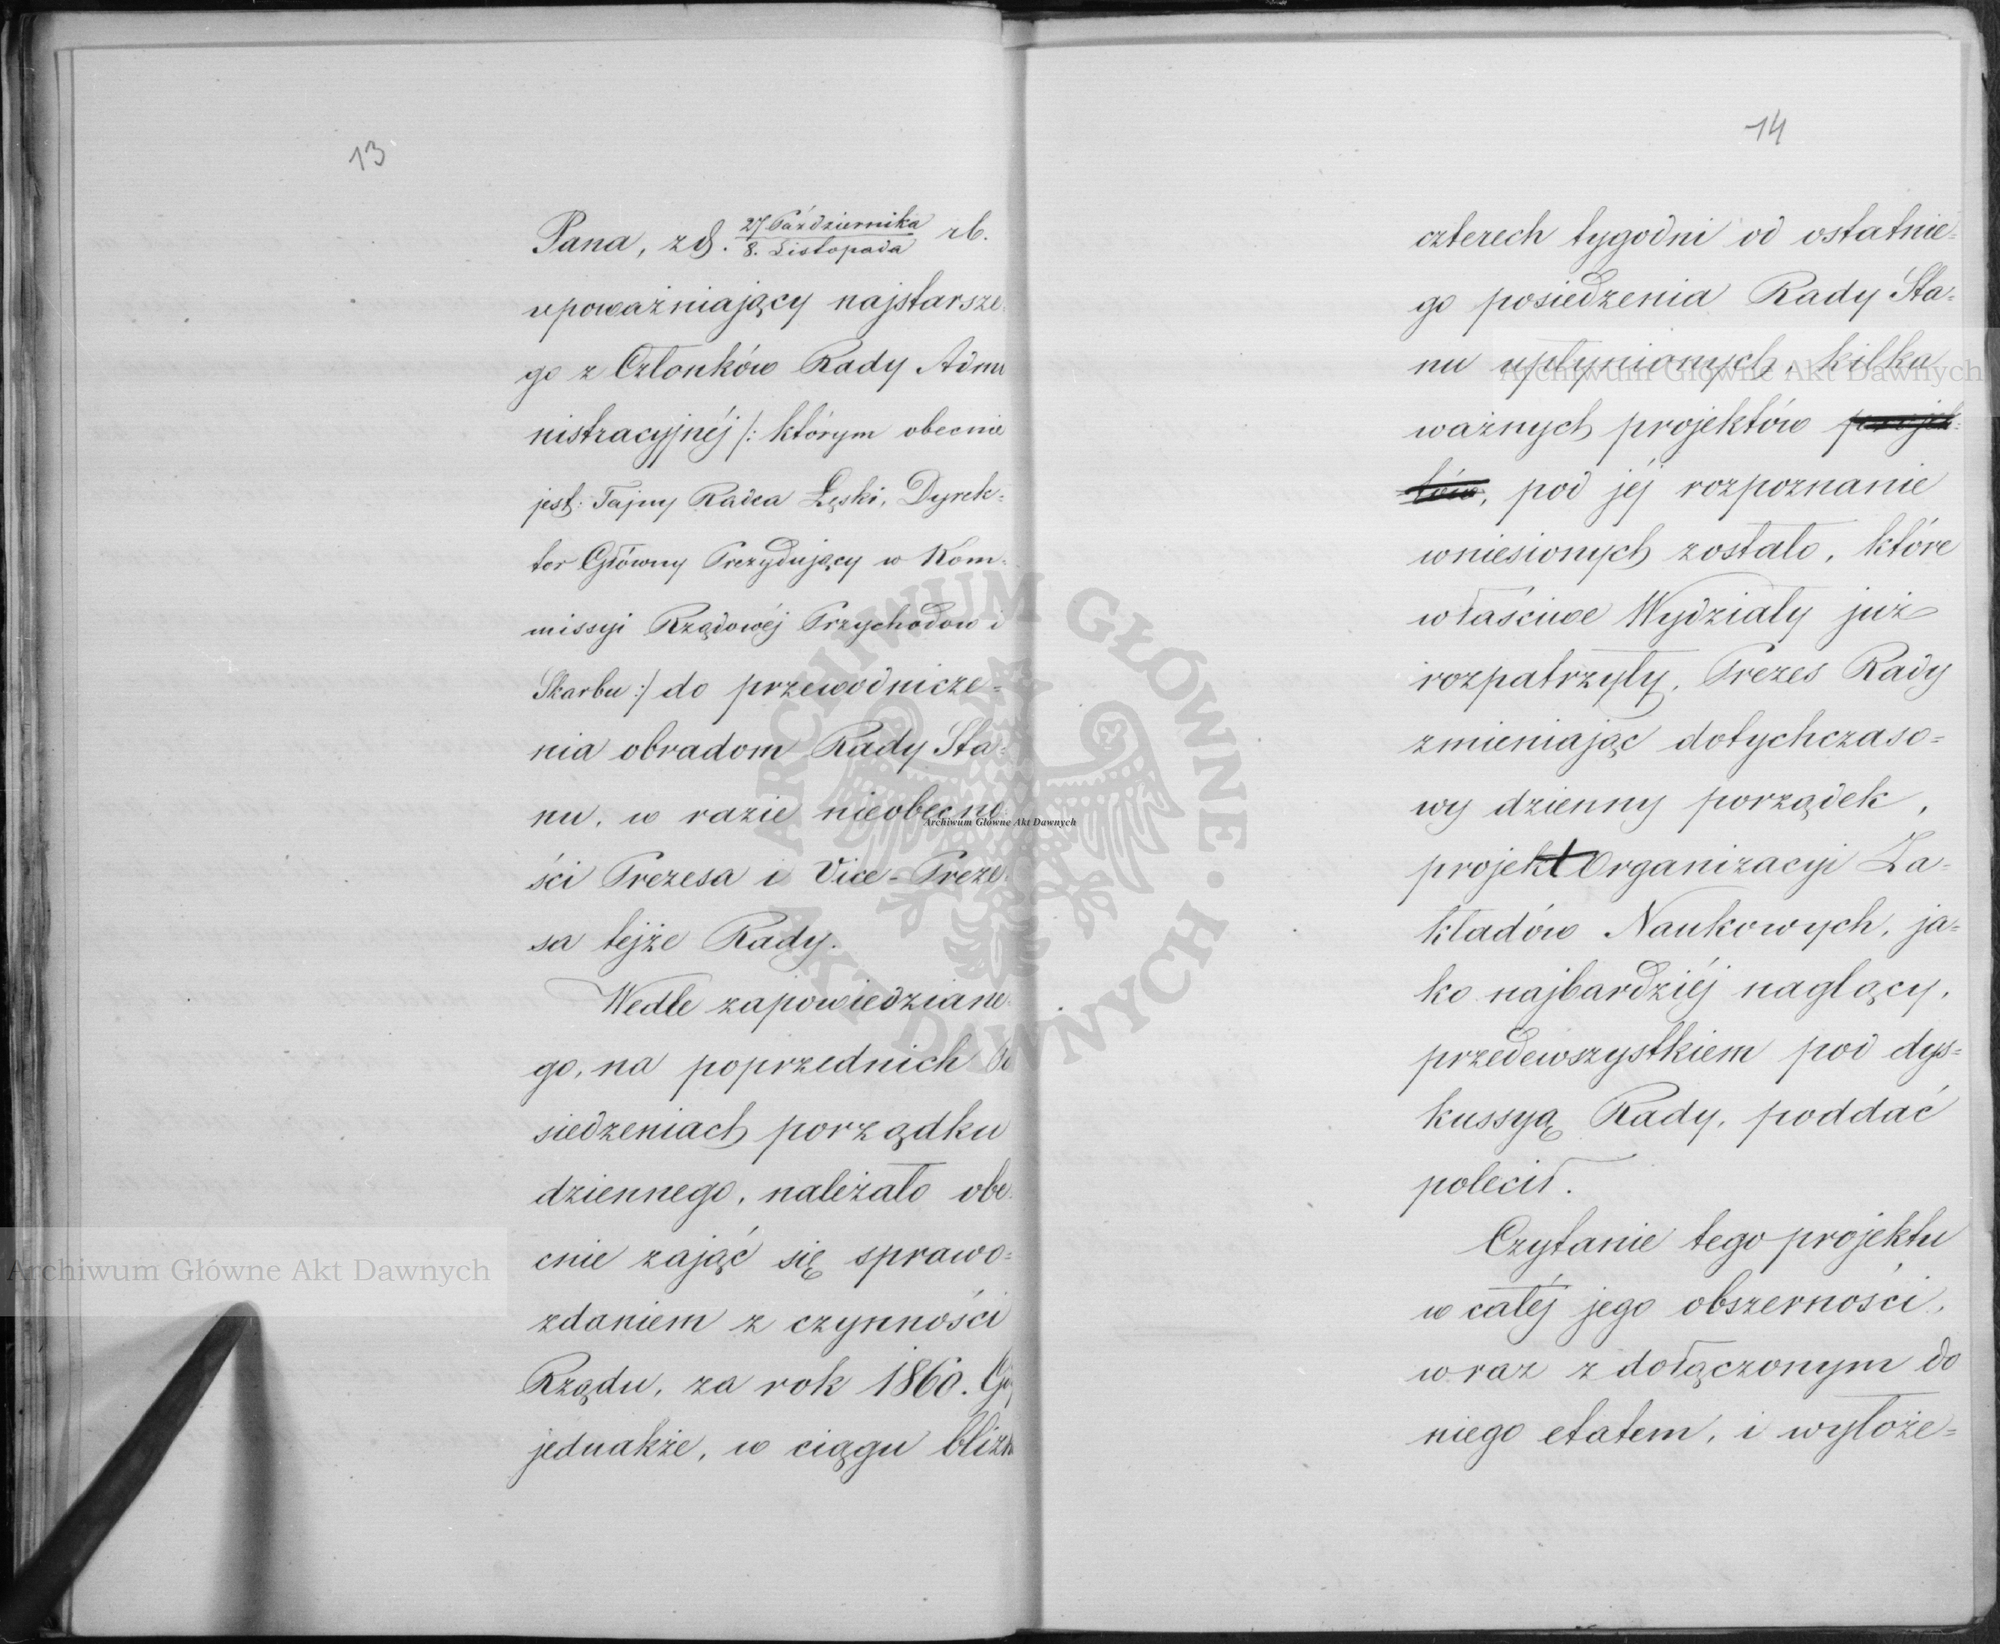 13
Pana, z d. 27 Października / 8. Listopada rb.
upoważniający najstarsze
go z Członków Rady Admi
nistracyjnéj /: którym obecnie
jest: Tajny Radca Łęski, Dyrek-
tor Główny Prezydujący w Kom-
missyi Rządowéj Przychodów i
Skarbu :/ do przewodnicze-
nia obradom Rady Sta-
nu, w razie nieobecno
ści Prezesa i Vice-Preze
sa tejże Rady.
Wedle zapowiedziane
go, na poprzednich Po
siedzeniach porządku
dziennego, należało obe
cnie zająć się sprawo-
zdaniem z czynności
Rządu, za rok 1860. Gdy
jednakże, w ciągu blizk
14
czterech tygodni od ostatnie-
go posiedzenia Rady Sta-
nu upłynionych, kilka
ważnych projektów projek-
tów, pod jéj rozpoznanie
wniesionych zostało, które
właściwe Wydziały już
rozpatrzyły, Prezes Rady
zmieniając dotychczaso-
wy dzienny porządek,
projekt Organizacyi Za-
kładów Naukowych, ja-
ko najbardziéj naglący,
przedewszystkiem pod dys-
kussyą Rady, poddać
polecił.
Czytanie tego projektu
w całéj jego obszerności,
wraz z dołączonym do
niego etatem, i wyłoże-
Archiwum Główne Akt Dawnych
Archiwum Główne Akt Dawnych
Archiwum Główne Akt Dawnych
ARCHIWUM GŁÓWNE · AKT DAWNYCH ·